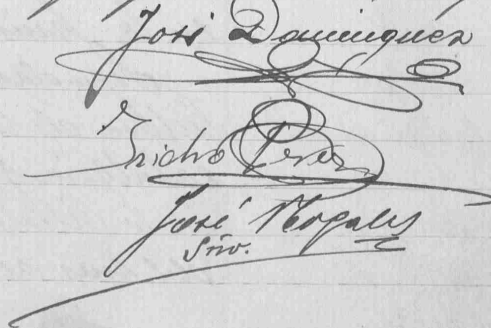 José Dominguez
Isidro Perez
José Nogales
Srio.